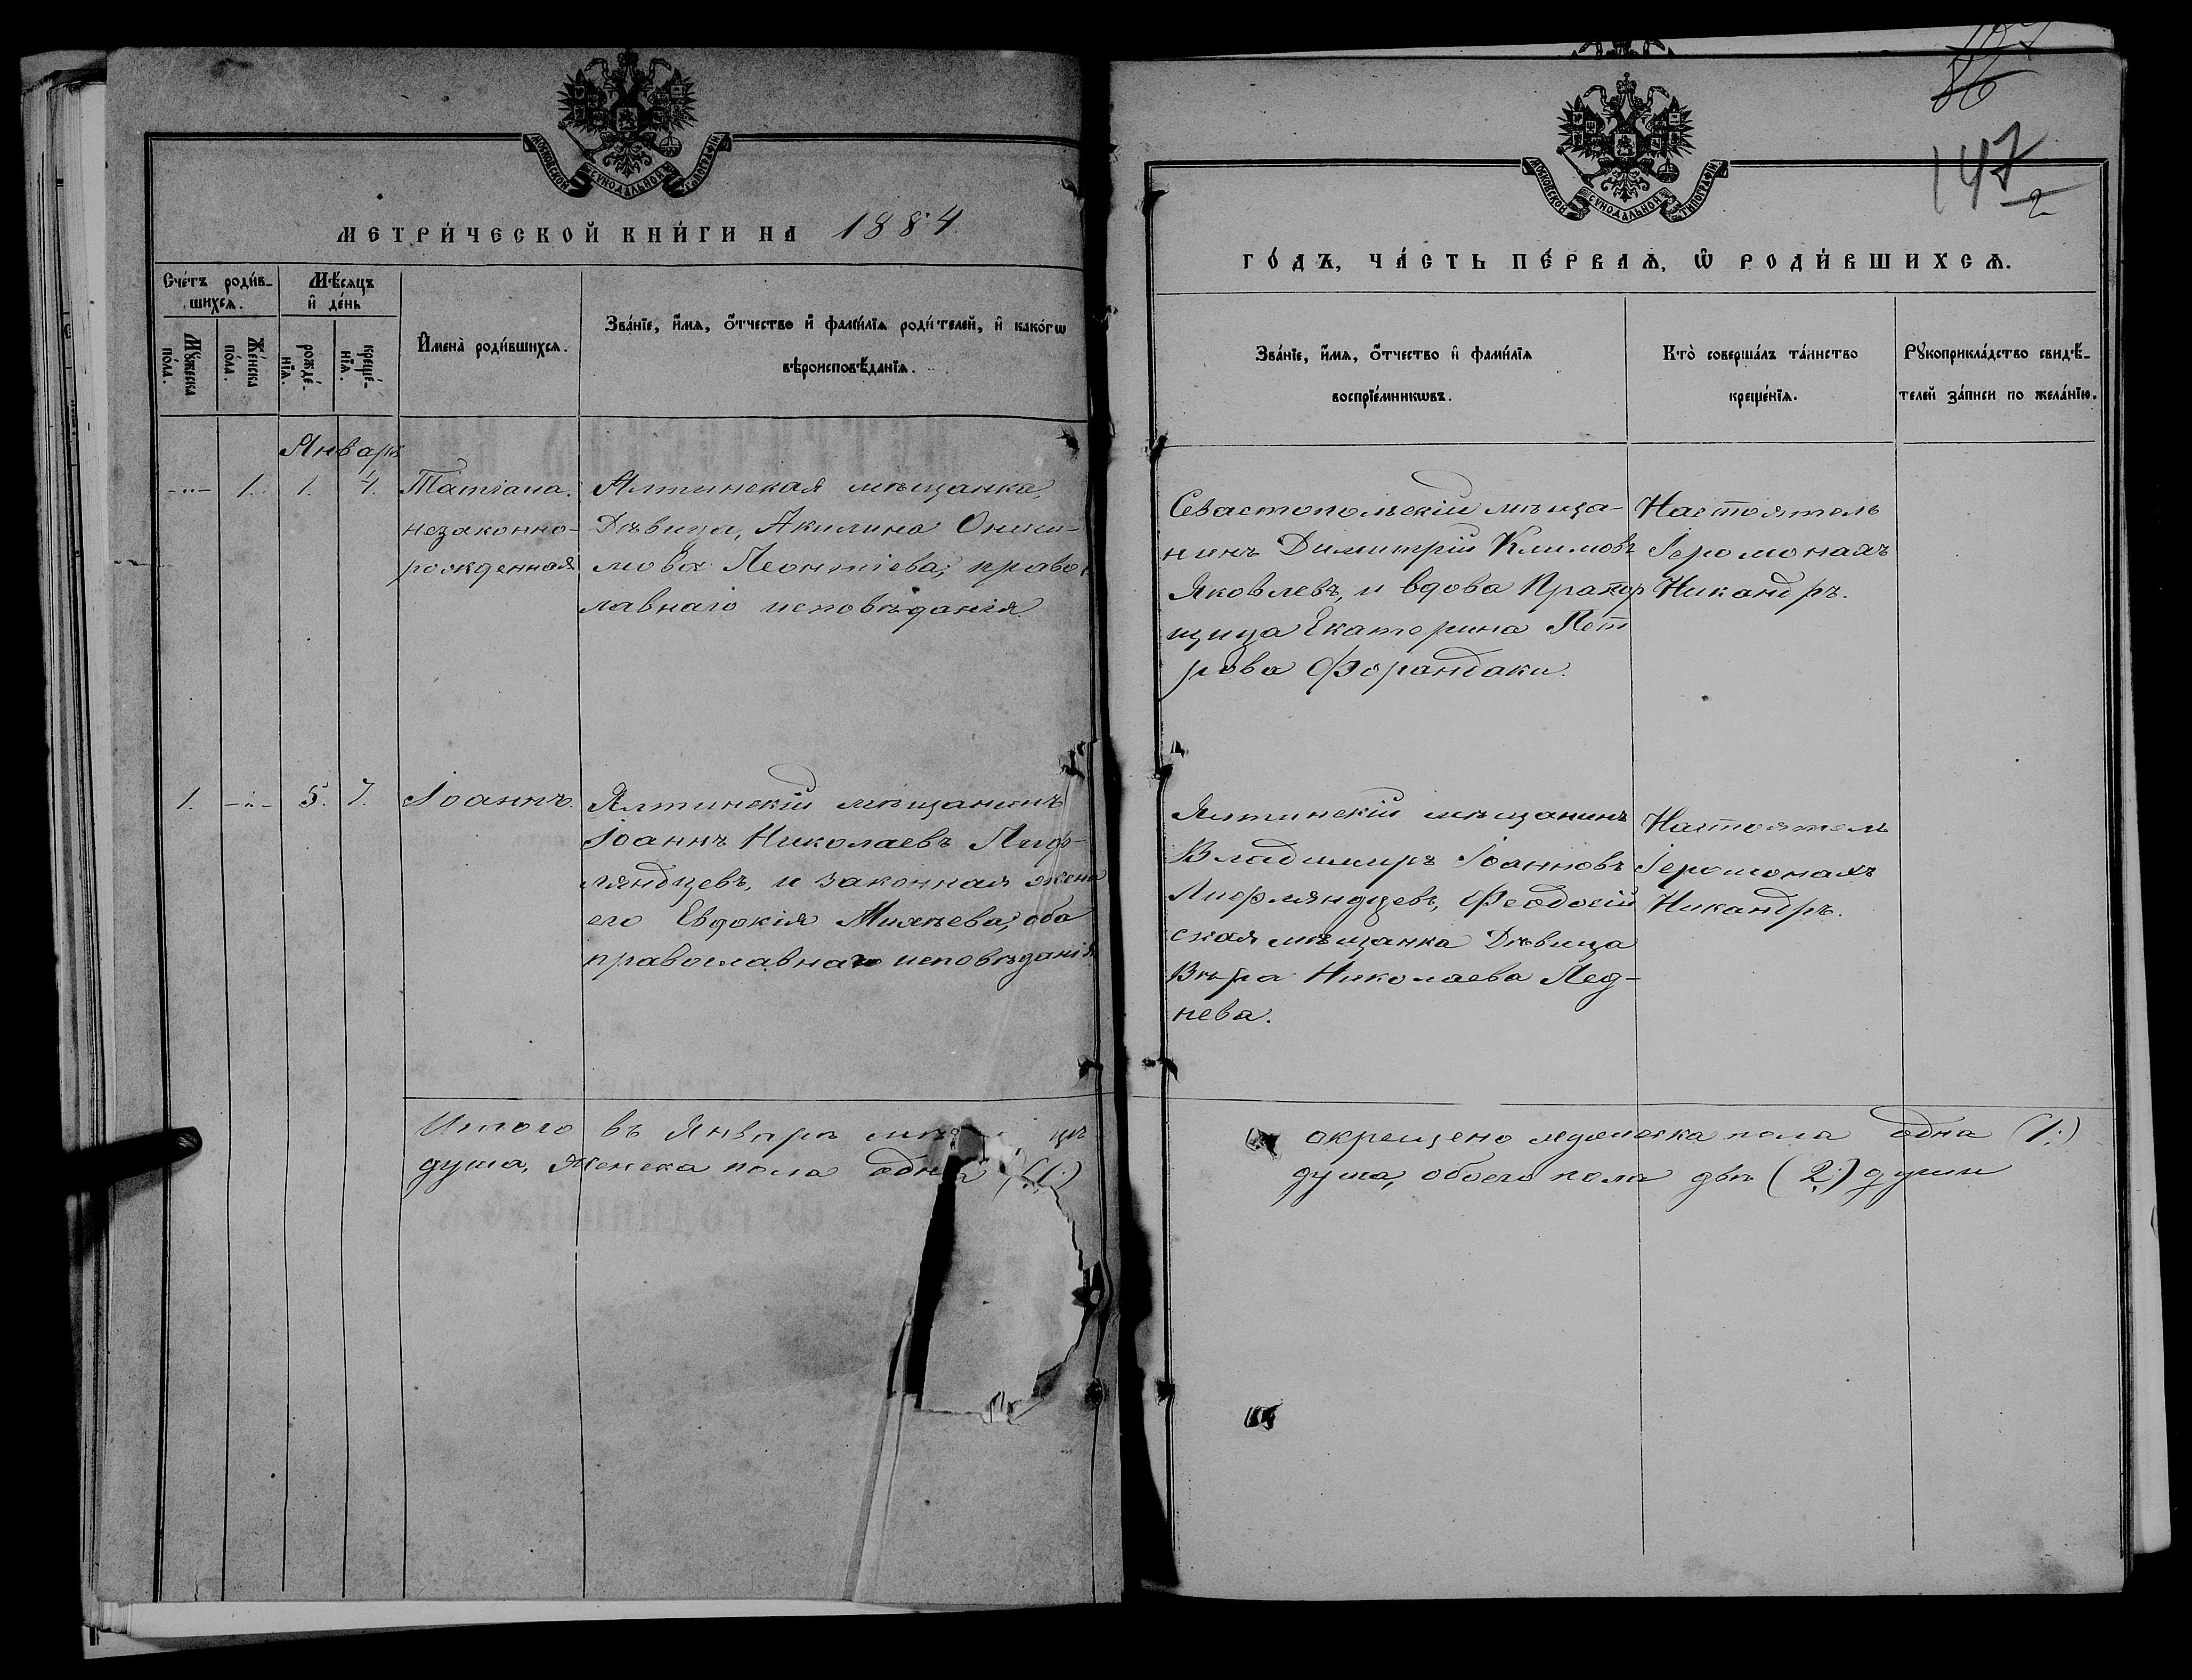 МОСКОВСКОЙ СѴНОДАЛЬНОЙ ТИПОГРАФІИ
МЕТРИ́ЧЕСКОЙ КНИ́ГИ НА 1884.
Сче́тъ роди́в-
шихсѧ.
Мѣ́сяцъ
и҆ де́нь
Мꙋ́жеска
по́ла.
Же́нска
по́ла.
рожде́-
нїѧ.
креще́-
нїѧ.
И҆мена̀ роди́вшихсѧ.
Зва́нїе, и҆́мѧ, ѻ҆́тчество и҆ фами́лїѧ роди́телей, и҆ како́гѡ
вѣроисповѣ́данїѧ.
Январь
-"- 1. 1. 4.
Татіана.
незаконно-
рожденная
Ялтинская мѣщанка,
Дѣвица, Акилина
Леонтіева, право
лавнаго исповѣданія
1. -"- 5. 7.
Іоаннъ.
Ялтинскій мѣщанинъ
Іоаннъ Николаевъ Лиф-
ляндцевъ, и законная жена
его Евдокія Михѣева, оба
православнаго исповѣданія
Итого въ Январѣ мѣ цѣ
душа, женска пола одна (1.)
86
147
2
МОСКОВСКОЙ СѴНОДАЛЬНОЙ ТИПОГРАФІИ
ГО́ДЪ, ЧА́СТЬ ПЕ́РВАѦ, Ѡ҆ РОДИ́ВШИХСѦ.
Зва́нїе, и҆́мѧ, ѻ҆́тчество и҆ фами́лїѧ
воспрїе́мникѡвъ.
Кто̀ соверша́лъ та́инство
креще́нїѧ.
Рꙋкоприкла́дство свидѣ́-
телей за́писи по жела́нїю.
Севастопольскій мѣща-
нинъ Димитрій Климовъ
Яковлевъ, и вдова Прапор
щица Екатерина Пет
рова Форандаки.
Настоятель
Іеромонахъ
Никандръ.
Ялтинскій мѣщанинъ
Владимиръ Іоанновъ
Лифляндцевъ, Феодосій
ская мѣщанка Дѣвица
Вѣра Николаева Лед-
нева.
Настоятель
Іеромонахъ
Никандръ.
окрещено мужеска пола одна (1.)
душа, обоего пола двѣ (2.) души